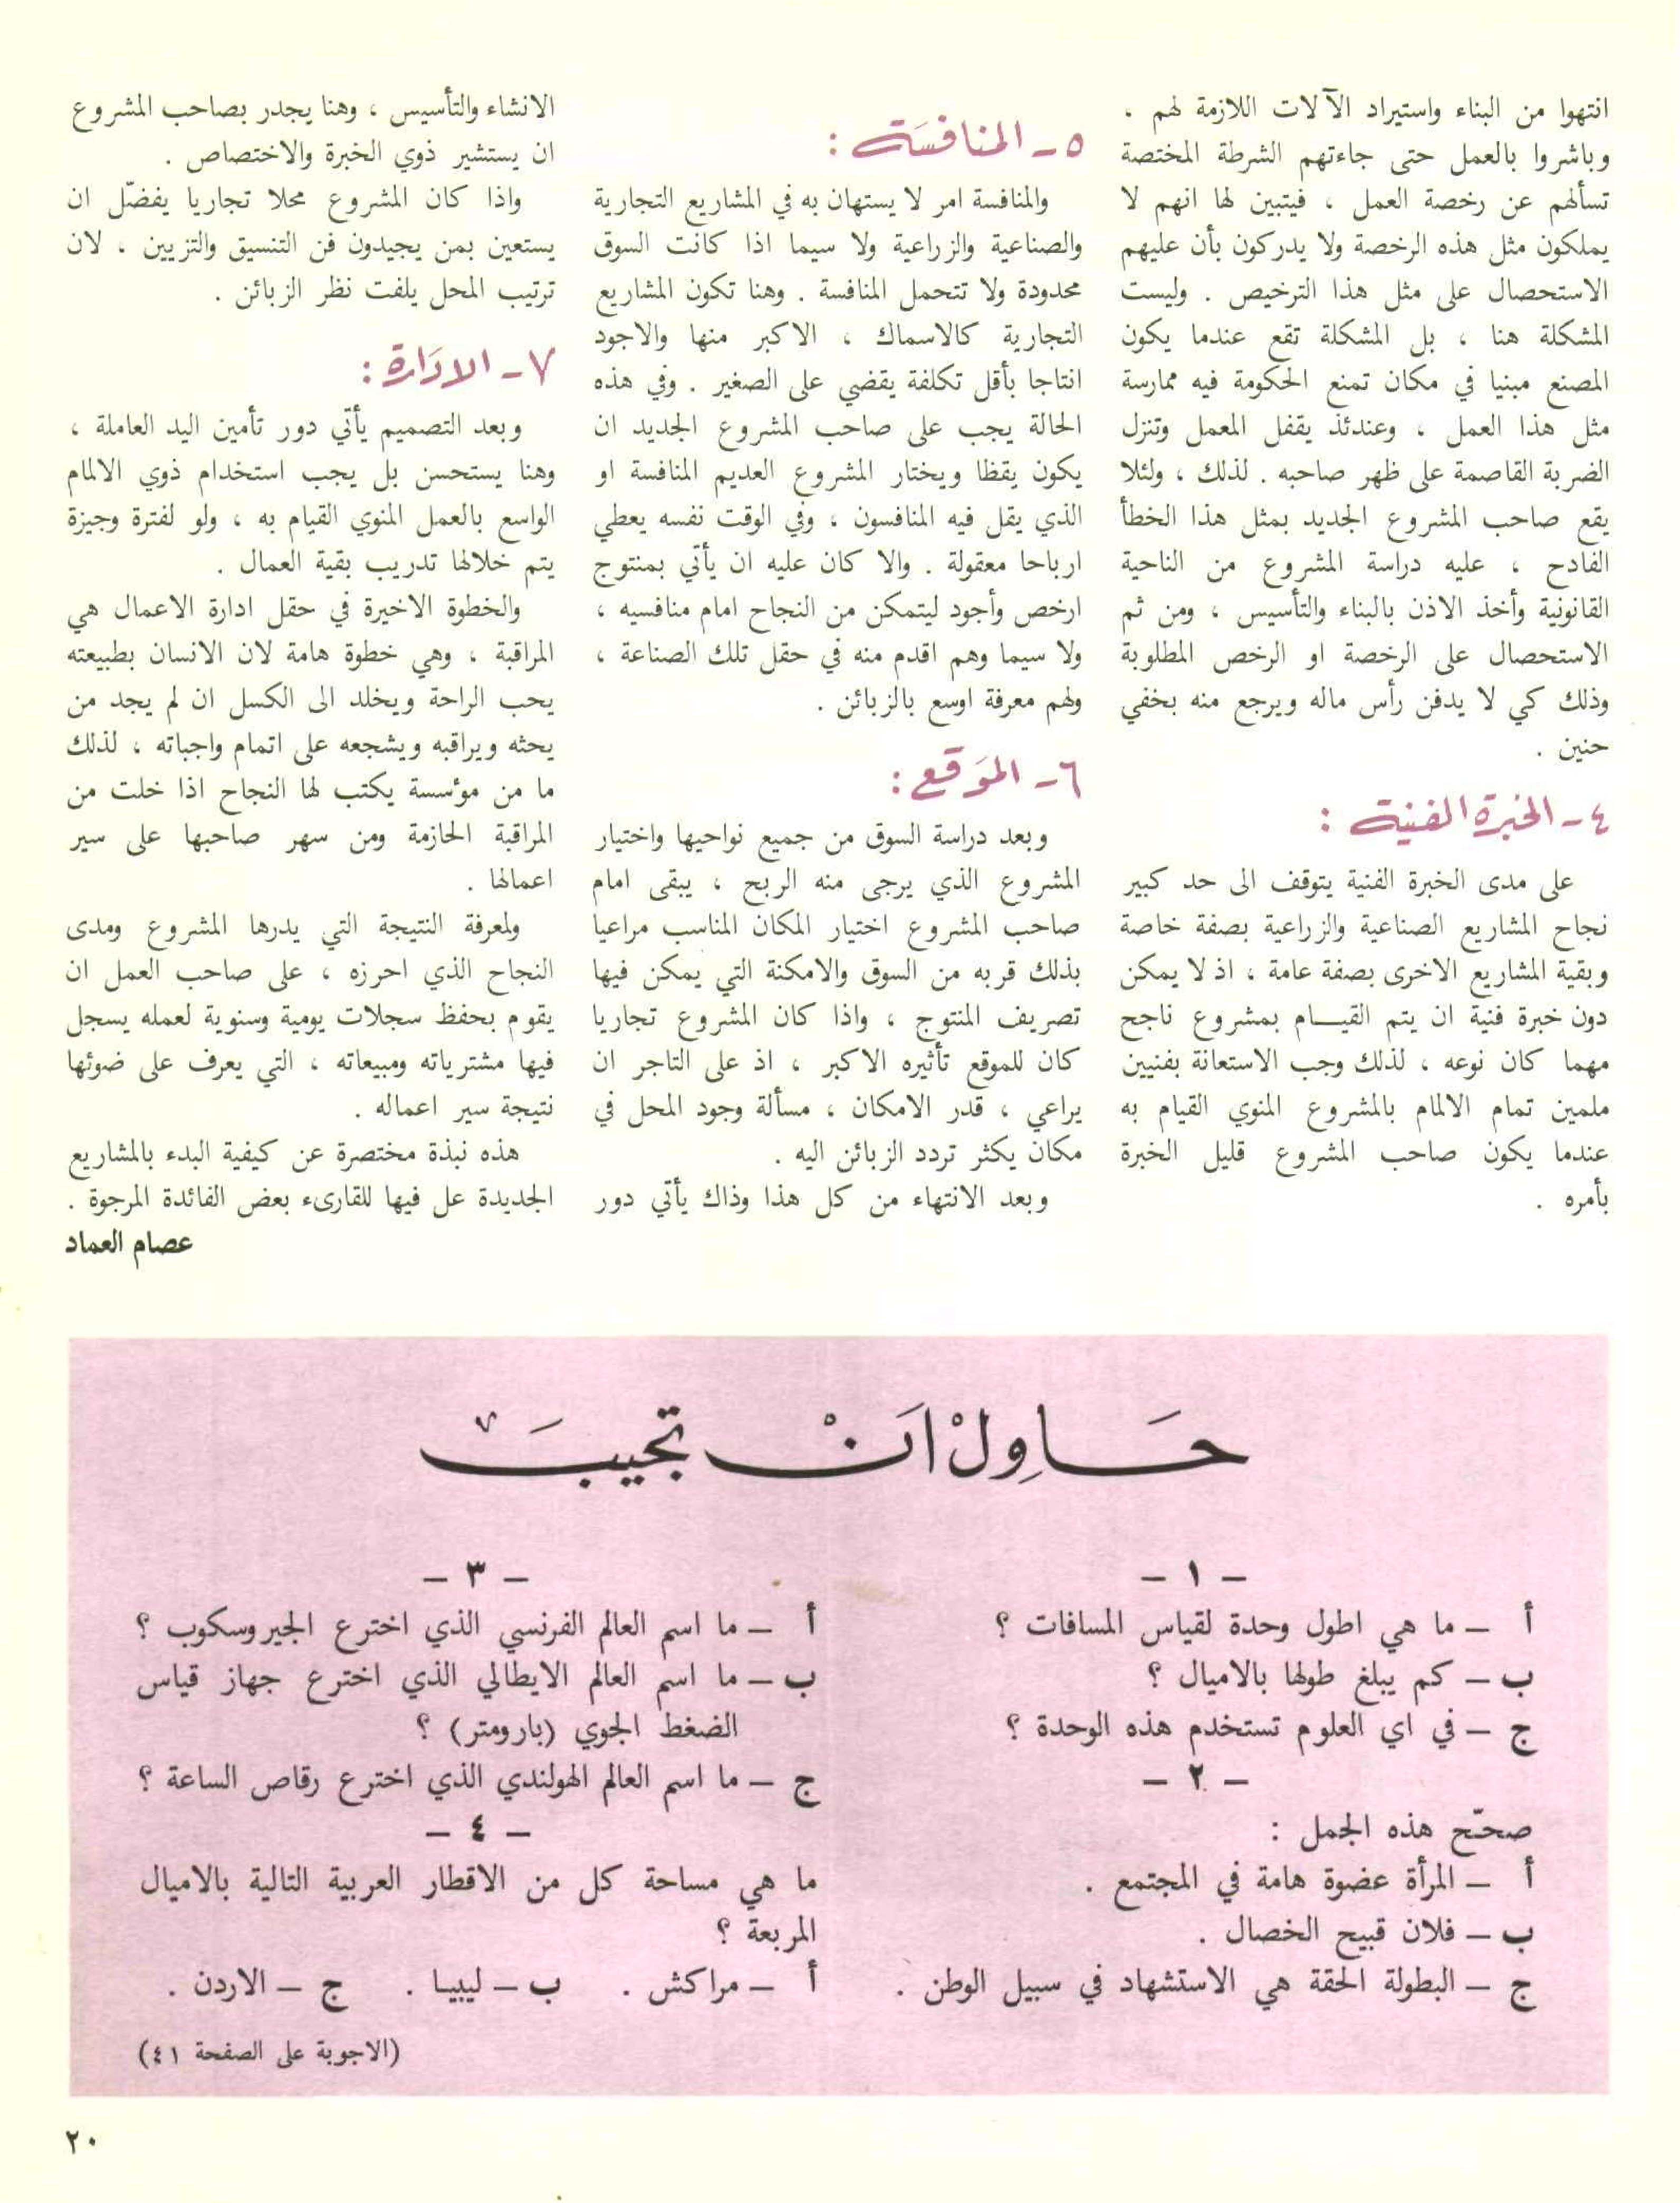 انتهوا من البناء واستيراد الآلات اللازمة لهم ،
وباشروا بالعمل حتى جاءتهم الشرطة المختصة
تسألهم عن رخصة العمل ، فيتبين لها انهم لا
يملكون مثل هذه الرخصة ولا يدركون بأن عليهم
الاستحصال على مثل هذا الترخيص . وليست
المشكلة هنا ، بل المشكلة تقع عندما يكون
المصنع مبنيا في مكان تمنع الحكومة فيه ممارسة
مثل هذا العمل ، وعندئذ يقفل المعمل وتنزل
الضربة القاصمة على ظهر صاحبه . لذلك ، ولئلا
يقع صاحب المشروع الجديد بمثل هذا الخطأ
الفادح ، عليه دراسة المشروع من الناحية
القانونية وأخذ الاذن بالبناء والتأسيس ، ومن ثم
الاستحصال على الرخصة او الرخص المطلوبة
وذلك كي لا يدفن رأس ماله ويرجع منه بخفي
حنين .
٤ - الخبرة الفنية :
على مدى الخبرة الفنية يتوقف الى حد كبير
نجاح المشاريع الصناعية والزراعية بصفة خاصة
وبقية المشاريع الاخرى بصفة عامة ، اذ لا يمكن
دون خبرة فنية ان يتم القيام بمشروع ناجح
مهما كان نوعه ، لذلك وجب الاستعانة بفنيين
ملمين تمام الالمام بالمشروع المنوي القيام به
عندما يكون صاحب المشروع قليل الخبرة
بأمره .
٥ - المنافسَة :
والمنافسة امر لا يستهان به في المشاريع التجارية
والصناعية والزراعية ولا سيما اذا كانت السوق
محدودة ولا تتحمل المنافسة . وهنا تكون المشاريع
التجارية كالاسماك ، الاكبر منها والاجود
انتاجا بأقل تكلفة يقضي على الصغير . وفي هذه
الحالة يجب على صاحب المشروع الجديد ان
يكون يقظا ويختار المشروع العديم المنافسة او
الذي يقل فيه المنافسون ، وفي الوقت نفسه يعطي
ارباحا معقولة . والا كان عليه ان يأتي بمنتوج
ارخص وأجود ليتمكن من النجاح امام منافسيه ،
ولا سيما وهم اقدم منه في حقل تلك الصناعة ،
ولهم معرفة اوسع بالزبائن .
٦ - الموَقع :
وبعد دراسة السوق من جميع نواحيها واختيار
المشروع الذي يرجى منه الربح ، يبقى امام
صاحب المشروع اختيار المكان المناسب مراعيا
بذلك قربه من السوق والامكنة التي يمكن فيها
تصريف المنتوج ، واذا كان المشروع تجاريا
كان للموقع تأثيره الاكبر ، اذ على التاجر ان
يراعي ، قدر الامكان ، مسألة وجود المحل في
مكان يكثر تردد الزبائن اليه .
وبعد الانتهاء من كل هذا وذاك يأتي دور
الانشاء والتأسيس ، وهنا يجدر بصاحب المشروع
ان يستشير ذوي الخبرة والاختصاص .
واذا كان المشروع محلا تجاريا يفضّل ان
يستعين بمن يجيدون فن التنسيق والتزيين ، لان
ترتيب المحل يلفت نظر الزبائن .
٧ - الادَارة :
وبعد التصميم يأتي دور تأمين اليد العاملة ،
وهنا يستحسن بل يجب استخدام ذوي الالمام
الواسع بالعمل المنوي القيام به ، ولو لفترة وجيزة
يتم خلالها تدريب بقية العمال .
والخطوة الاخيرة في حقل ادارة الاعمال هي
المراقبة ، وهي خطوة هامة لان الانسان بطبيعته
يحب الراحة ويخلد الى الكسل ان لم يجد من
يحثه ويراقبه ويشجعه على اتمام واجباته ، لذلك
ما من مؤسسة يكتب لها النجاح اذا خلت من
المراقبة الحازمة ومن سهر صاحبها على سير
اعمالها .
ولمعرفة النتيجة التي يدرها المشروع ومدى
النجاح الذي احرزه ، على صاحب العمل ان
يقوم بحفظ سجلات يومية وسنوية لعمله يسجل
فيها مشترياته ومبيعاته ، التي يعرف على ضوئها
نتيجة سير اعماله .
هذه نبذة مختصرة عن كيفية البدء بالمشاريع
الجديدة عل فيها للقارىء بعض الفائدة المرجوة .
عصام العماد
حَاوِلْ اَنْ تجيبَ
- ١ -
أ - ما هي اطول وحدة لقياس المسافات ؟
ب - كم يبلغ طولها بالاميال ؟
ج - في اي العلوم تستخدم هذه الوحدة ؟
- ٢ -
صحّح هذه الجمل :
أ - المرأة عضوة هامة في المجتمع .
ب - فلان قبيح الخصال .
ج - البطولة الحقة هي الاستشهاد في سبيل الوطن .
- ٣ -
أ - ما اسم العالم الفرنسي الذي اخترع الجيروسكوب ؟
ب - ما اسم العالم الايطالي الذي اخترع جهاز قياس
الضغط الجوي (بارومتر) ؟
ج - ما اسم العالم الهولندي الذي اخترع رقاص الساعة ؟
- ٤ -
ما هي مساحة كل من الاقطار العربية التالية بالاميال
المربعة ؟
أ - مراكش . ب - ليبيا . ج - الاردن .
(الاجوبة على الصفحة ٤١)
٢٠